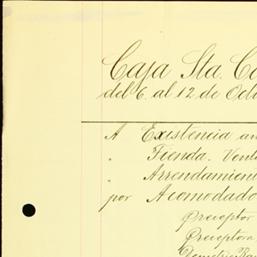 Caja Sta. Ca
del 6. al 12. de Octu
A Existencia an
" Tienda. Vent
" Arrendamien
por Acomodado
Preceptor
Preceptora
Demetrio Ra